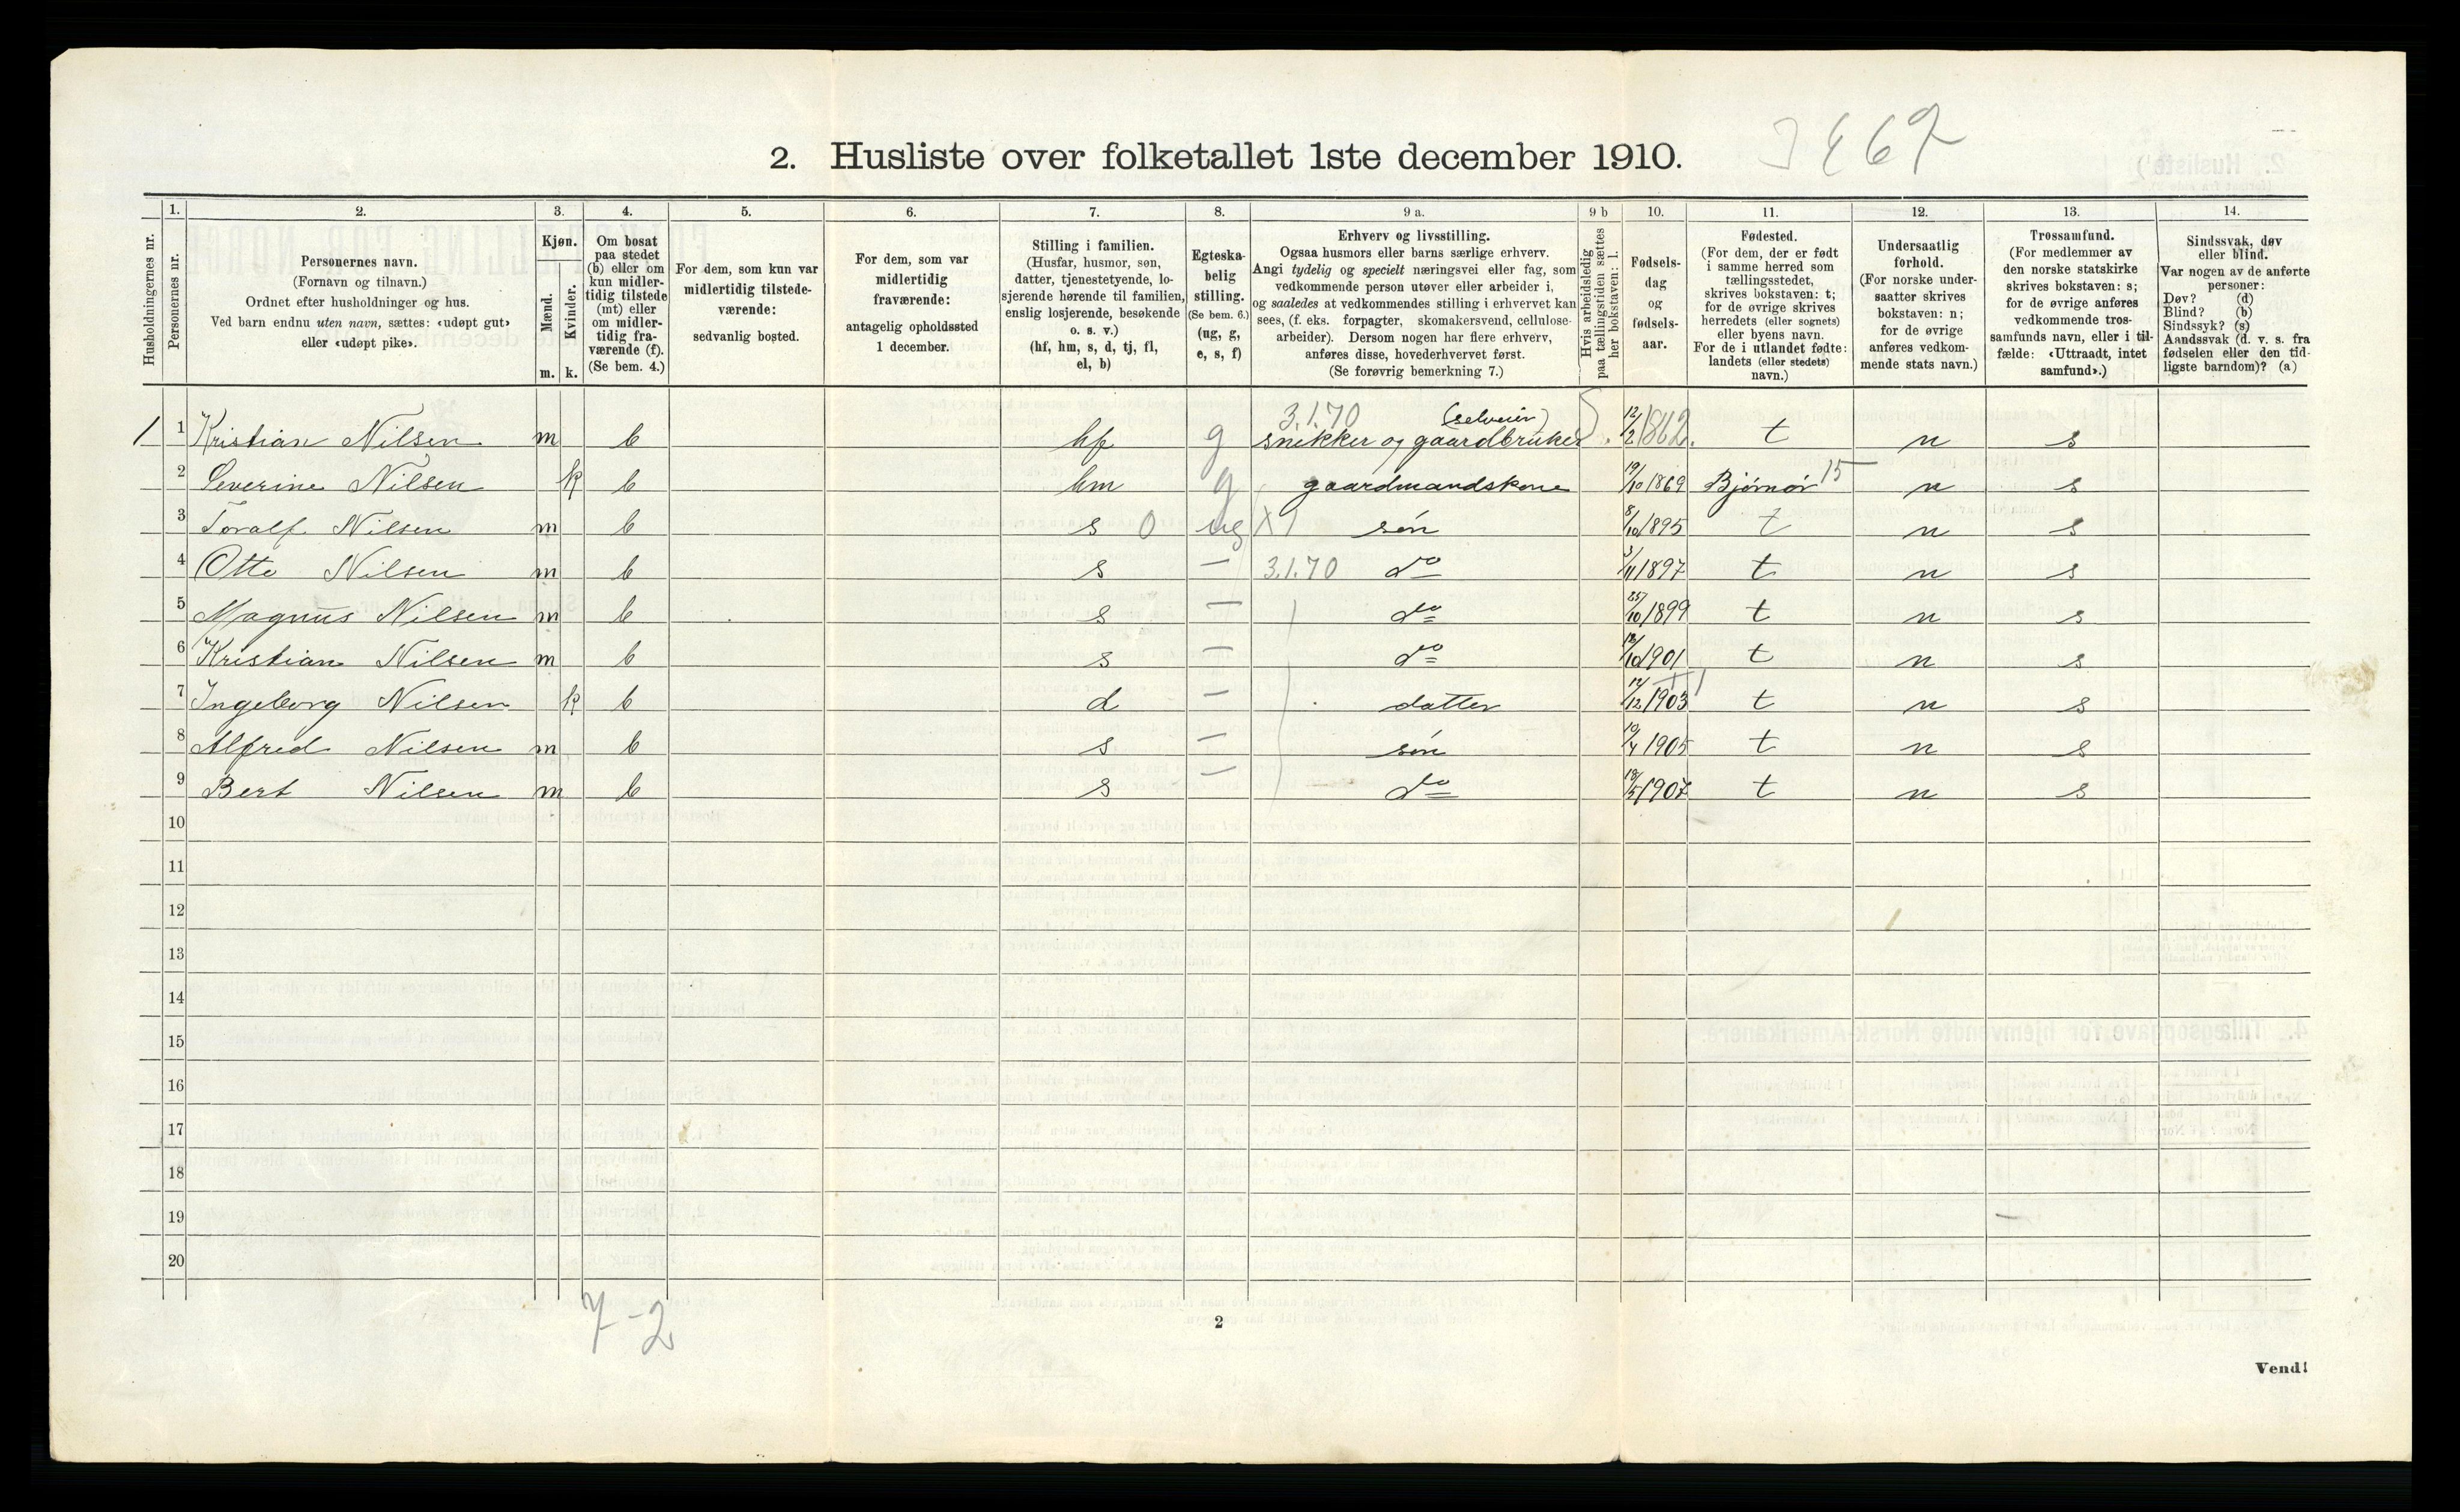 2. Husliste over folketallet 1ste december 1910.
Husholdningernes nr.
1.
Personernes nr.
2.
Personernes navn.
(Fornavn og tilnavn.)
Ordnet efter husholdninger og hus.
Ved barn endnu uten navn, sættes: «udøpt gut»
eller «udøpt pike».
3.
Kjøn.
Mænd.
Kvinder.
m. k.
4.
Om bosat
paa stedet
(b) eller om
kun midler-
tidig tilstede
(mt) eller
om midler-
tidig fra-
værende (f).
(Se bem. 4.)
5.
For dem, som kun var
midlertidig tilstede-
værende:
sedvanlig bosted.
6.
For dem, som var
midlertidig
fraværende:
antagelig opholdssted
1 december.
7.
Stilling i familien.
(Husfar, husmor, søn,
datter, tjenestetyende, lo-
sjerende hørende til familien,
enslig losjerende, besøkende
o. s. v.)
(hf, hm, s, d, tj, fl,
el, b)
8.
Egteska-
belig
stilling.
(Se bem. 6.)
(ug, g,
e, s, f)
9 a.
Erhverv og livsstilling.
Ogsaa husmors eller barns særlige erhverv.
Angi tydelig og specielt næringsvei eller fag, som
vedkommende person utøver eller arbeider i,
og saaledes at vedkommendes stilling i erhvervet kan
sees, (f. eks. forpagter, skomakersvend, cellulose-
arbeider). Dersom nogen har flere erhverv,
anføres disse, hovederhvervet først.
(Se forøvrig bemerkning 7.)
9 b
Hvis arbeidsledig
paa tællingstiden sættes
her bokstaven: l.
10.
Fødsels-
dag
og
fødsels-
aar.
11.
Fødested.
(For dem, der er født
i samme herred som
tællingsstedet,
skrives bokstaven: t;
for de øvrige skrives
herredets (eller sognets)
eller byens navn.
For de i utlandet fødte:
landets (eller stedets)
navn.)
12.
Undersaatlig
forhold.
(For norske under-
saatter skrives
bokstaven: n;
for de øvrige
anføres vedkom-
mende stats navn.)
13.
Trossamfund.
(For medlemmer av
den norske statskirke
skrives bokstaven: s;
for de øvrige anføres
vedkommende tros-
samfunds navn, eller i til-
fælde: «Uttraadt, intet
samfund».)
14.
Sindssvak, døv
eller blind.
Var nogen av de anførte
personer:
Døv? (d)
Blind? (b)
Sindssyk? (s)
Aandssvak (d. v. s. fra
fødselen eller den tid-
ligste barndom)? (a)
3.1.70 (selveier)
1 1 Kristian Nilsen m b hf g snikker og gaardbruker 12/2 1862. t n s
2 Severine Nilsen k b hm g gaardmandskone 19/10 1869 Bjørnør 15 n s
3 Toralf Nilsen m b s 0 ug X søn 8/10 1895 t n s
4 Otto Nilsen m b s — 3.1.70 do 3/11 1897 t n s
5 Magnus Nilsen m b s — do 25/10 1899 t n s
6 Kristian Nilsen m b s — do /10 1901 t n s
7 Ingeborg Nilsen k b d — datter 12/12 1903 t n s
8 Alfred Nilsen m b s — søn 10/4 1905 t n s
9 Bert Nilsen m b s — do 18/5 1907 t n s
10
11
12
13
14
15
16
17
18
19
20
7-2
2
Vend!